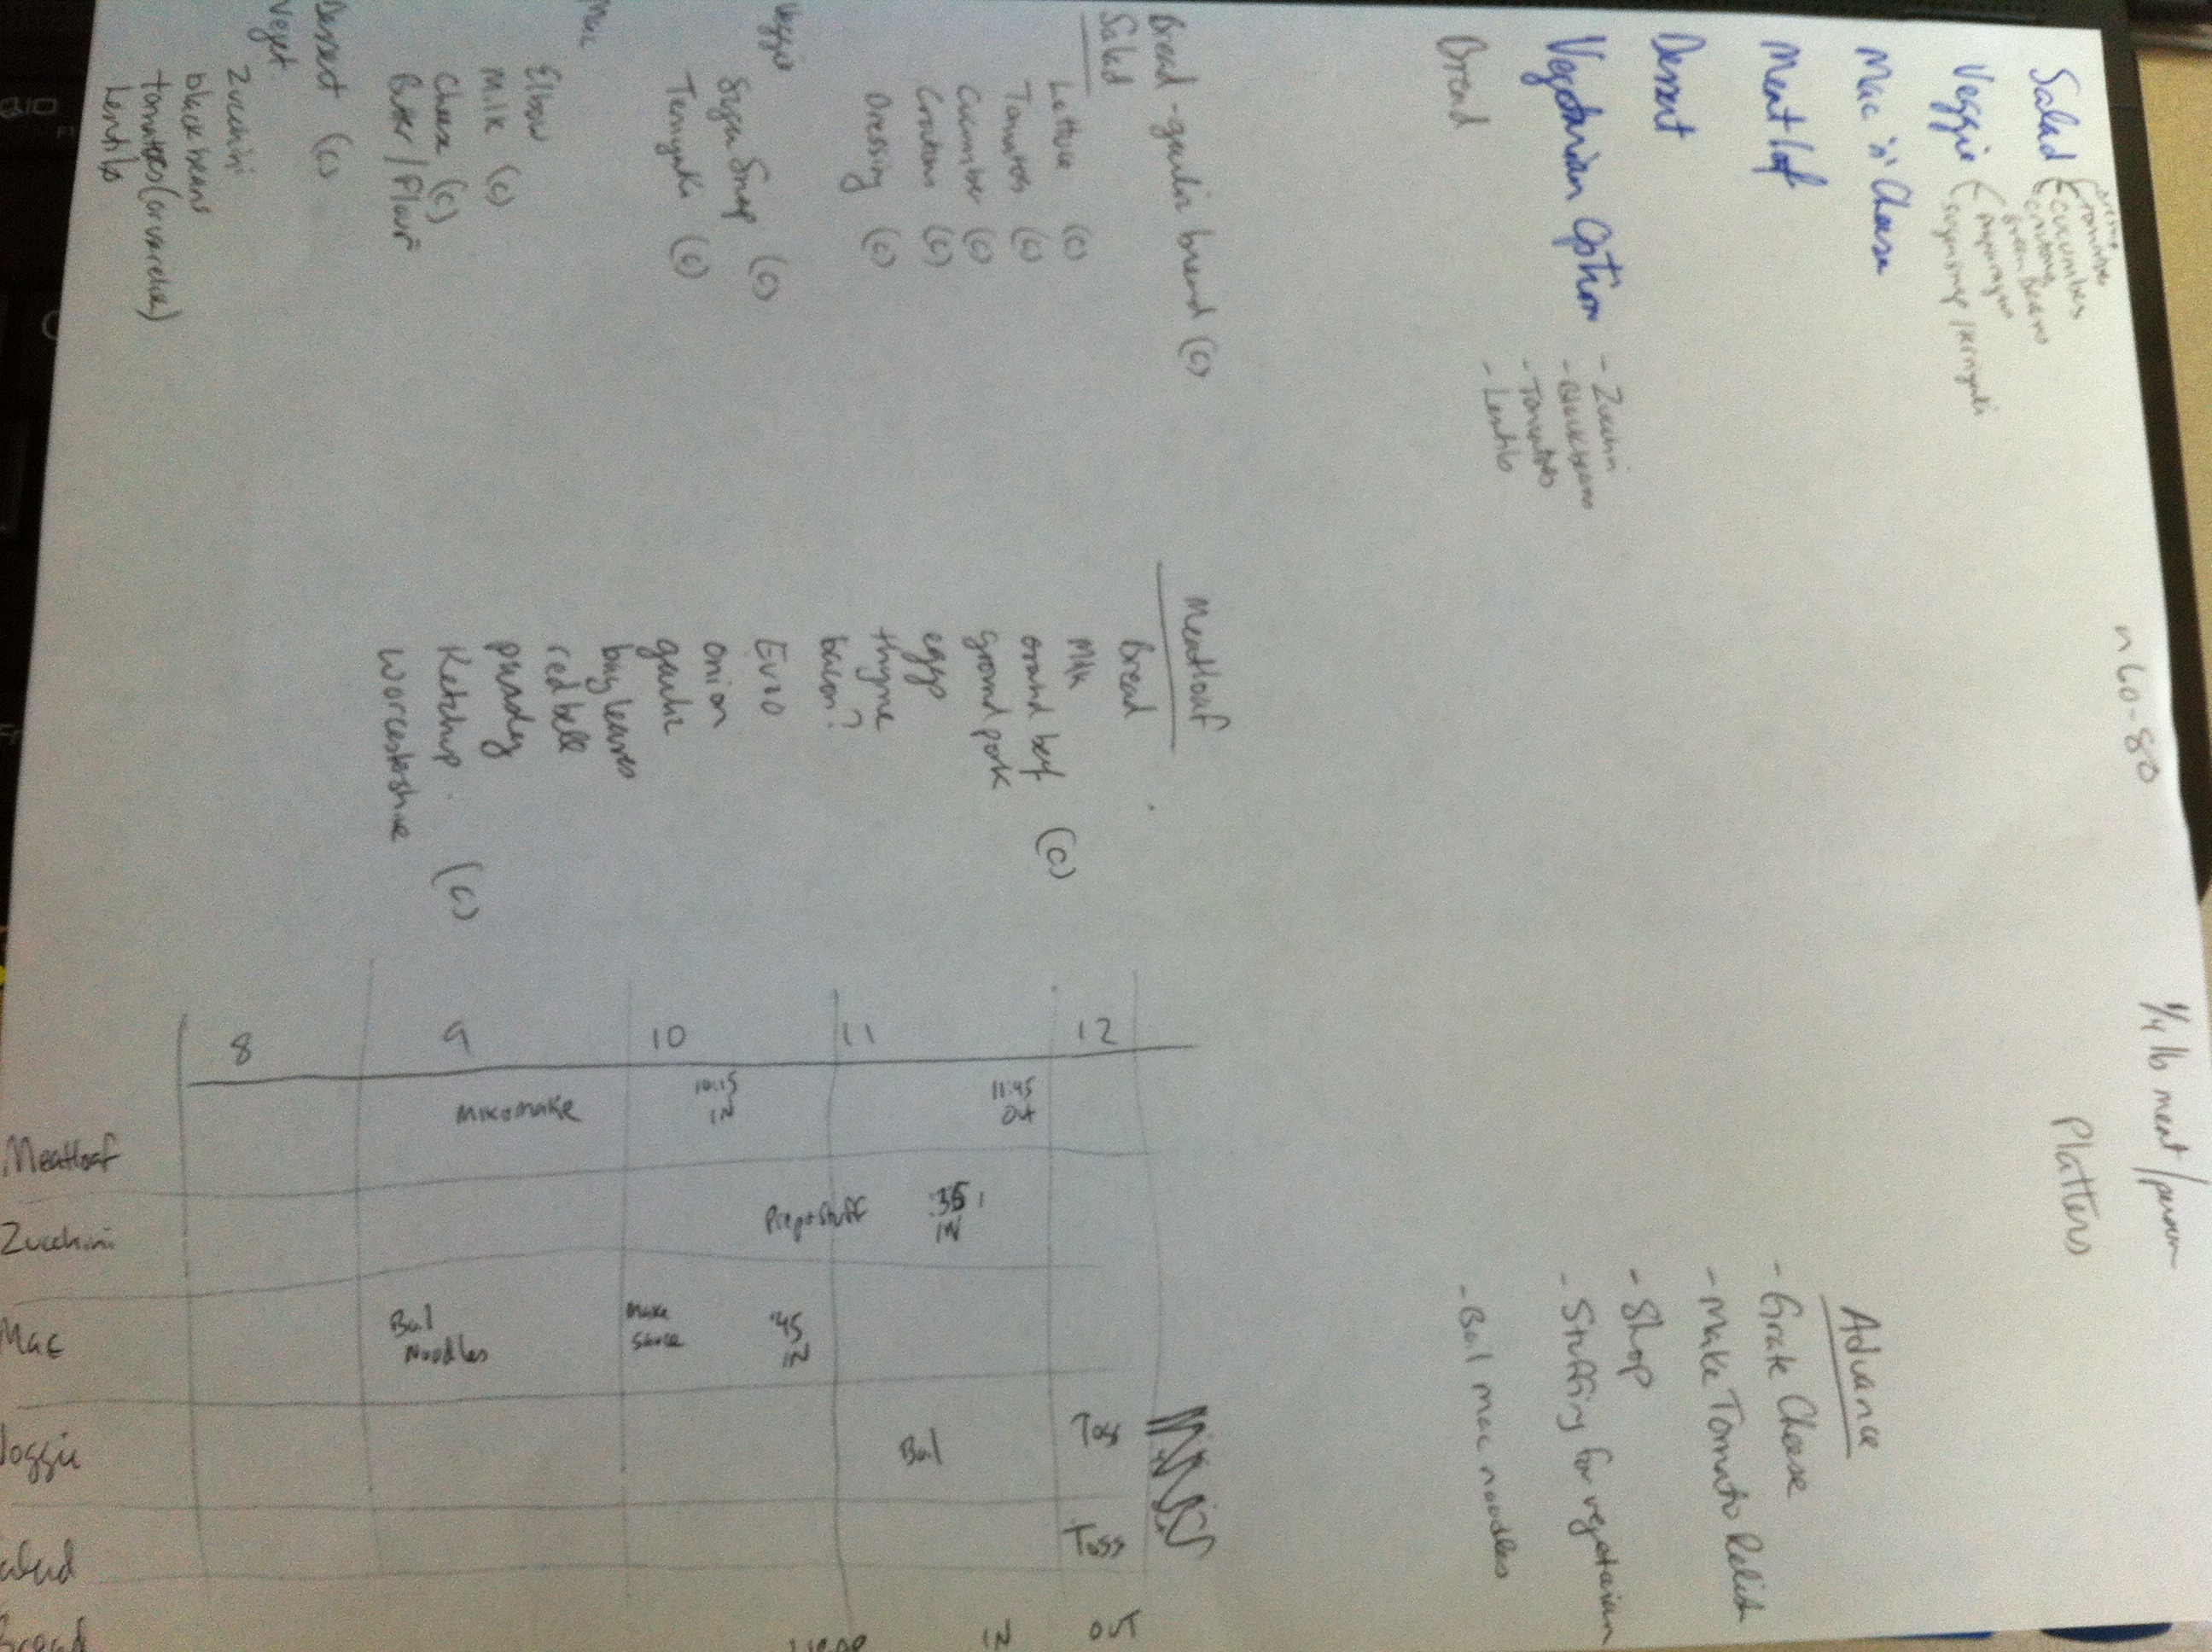 n 60-80
1/4 lb meat / person
Platters
Salad
tomatoes
cucumbers
croutons
Veggie
green beans
asparagus
sugar snap / teriyaki
Mac 'n' Cheese
Meatlof
Dessert
Vegetarian Option
- Zucchini
- Blackbeans
- Tomatoes
- Lentils
Bread
Advance
- Grate Cheese
- Make Tomato Relish
- Shop
- Stuffing for vegetarian
- Boil mac noodles
Bread - garlic bread (c)
Salad
Lettuce (c)
Tomatoes (c)
Cucumber (c)
Croutons (c)
Dressing (c)
Veggie
Sugar Snap (c)
Teriyaki (c)
Mac
Elbow
Milk (c)
Cheese (c)
Butter / Flour
Dessert (c)
Veget.
Zucchini
black beans
tomatoes (or varieties)
Lentils
Meatloaf
Bread
Milk
ground beef (c)
ground pork
eggs
thyme
bacon?
Evoo
onion
garlic
bay leaves
red bell
parsley
Ketchup (c)
Worcestershire
8 9 10 11 12
Meatloaf mix+make 10:15 IN 11:45 Out
Zucchini Prep+stuff :35 IN
Mac Boil Noodles Make Sauce :45 IN
Veggie Boil Toss
Salad Toss
Bread IN OUT